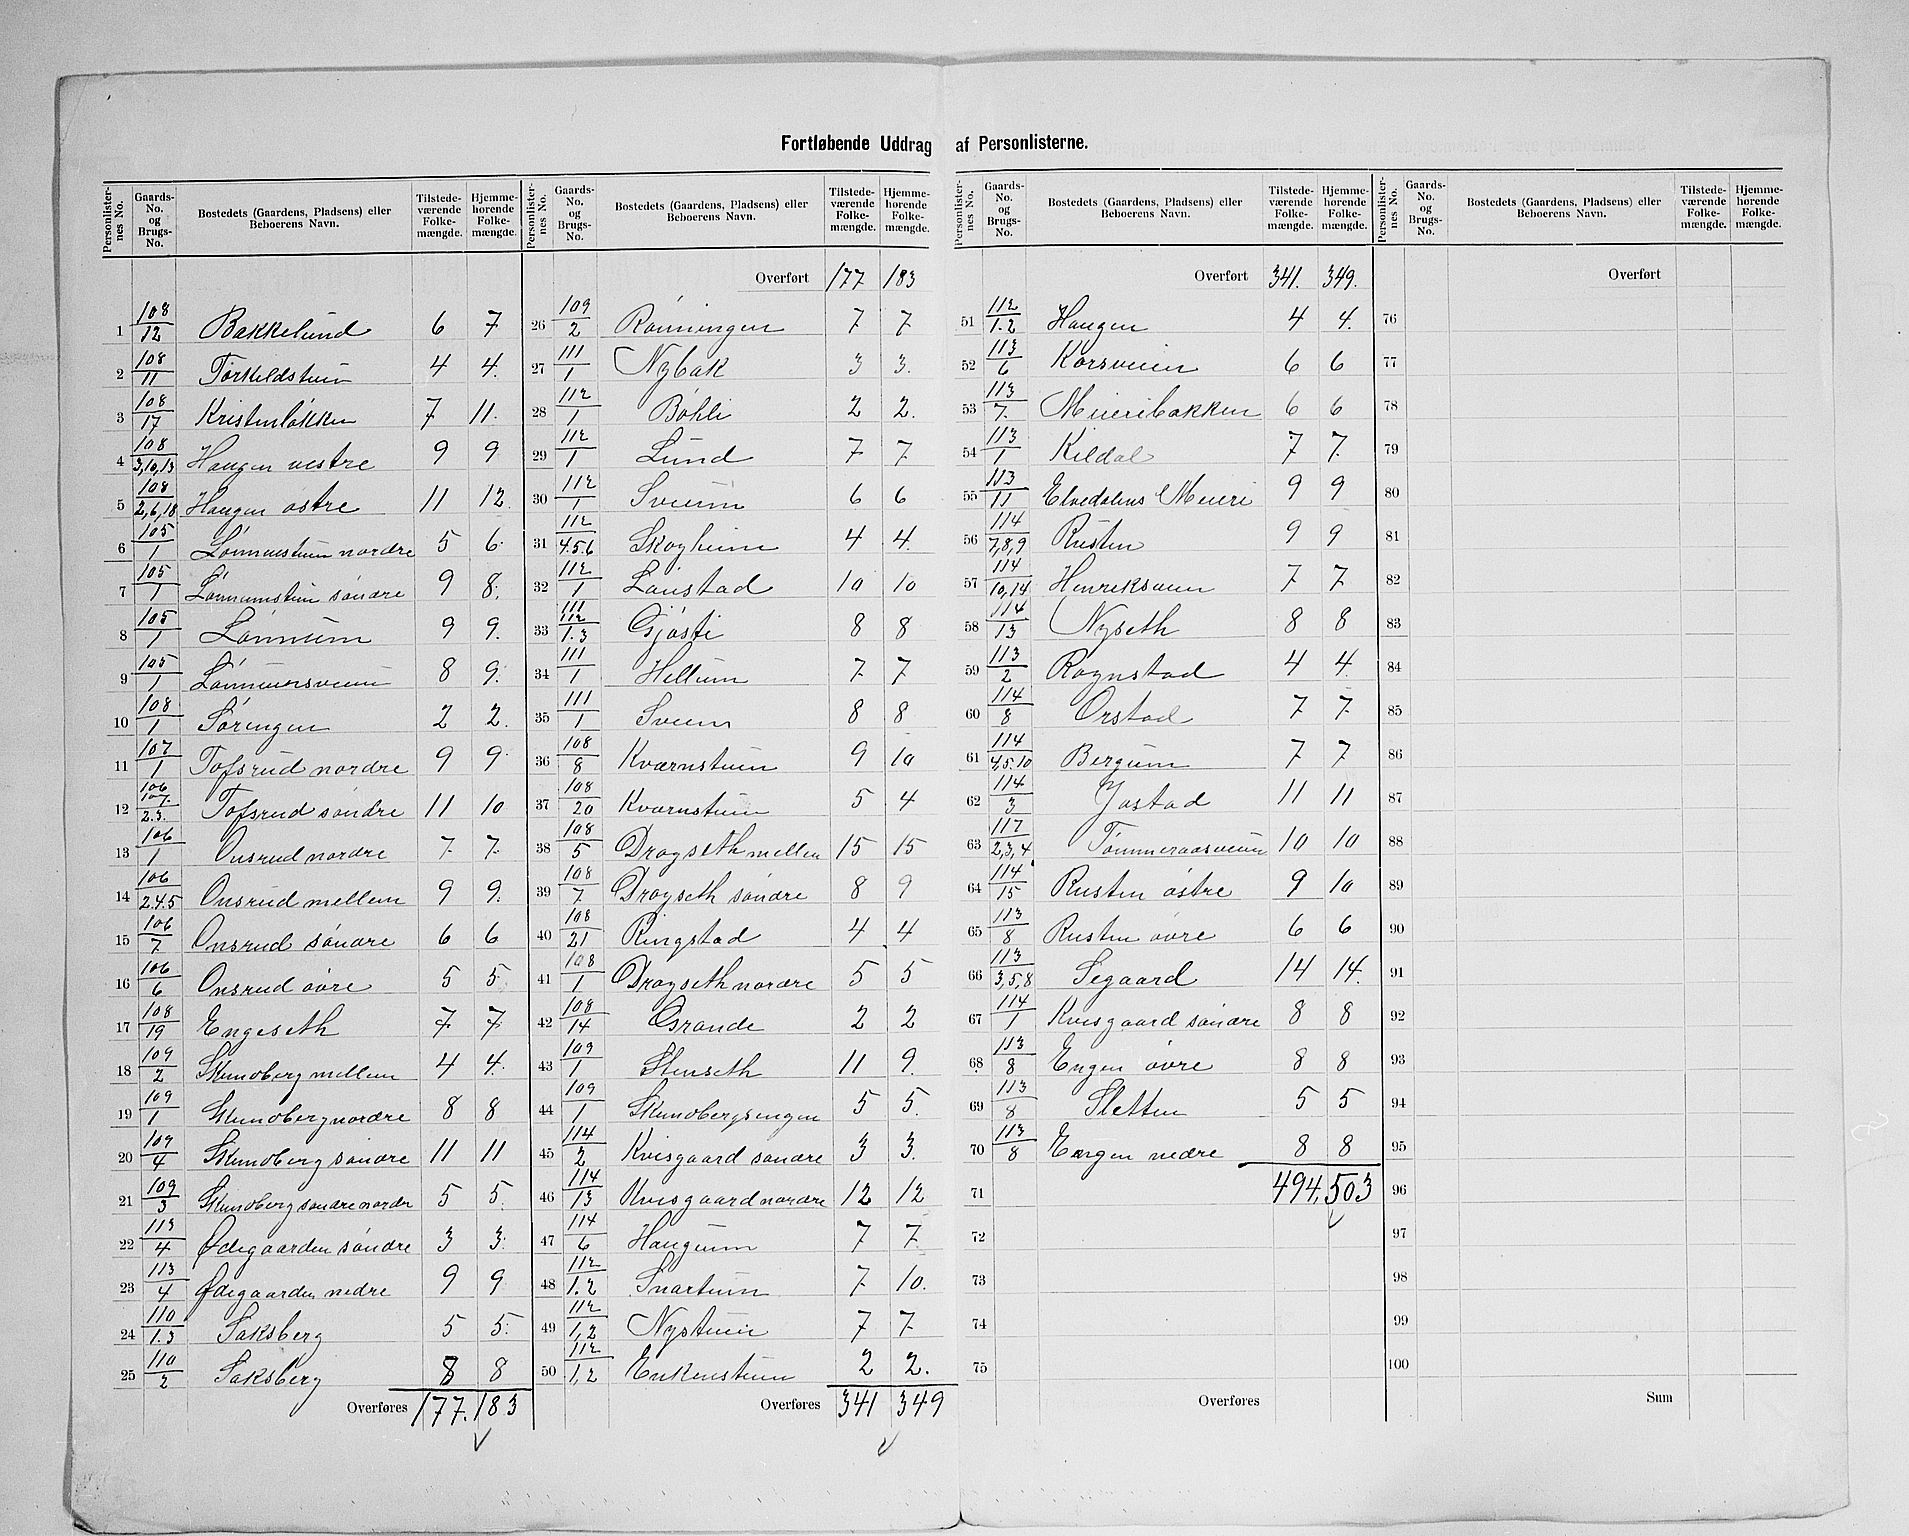 Fortløbende Uddrag af Personlisterne.
Personlisternes No. Gaards-No. og Brugs-No. Bostedets (Gaardens, Pladsens) eller Beboerens Navn. Tilstedeværende Folkemængde. Hjemmehørende Folkemængde.
1 108/12 Bakkelund 6 7
2 108/11 Torkildstuen 4 4.
3 108/17 Kristenløkken 7 11.
4 108/3,10,13 Haugen vestre 9 9
5 108/2,6,18 Haugen østre 11 12.
6 105/1 Lønnumstuen nordre 5 6.
7 105/1 Lønnumstuen søndre 9 8.
8 105/1 Lønnum 9 9.
9 105/1 Lønnumsveien 8 9.
10 108/1 Sørengen 2 2.
11 107/1 Tofsrud nordre 9 9.
12 106 107/2.3. Tofsrud søndre 11 10
13 106/1 Onsrud nordre 7 7.
14 106/2.4.5 Onsrud mellem 9 9.
15 106/7 Onsrud søndre 6 6
16 106/6 Onsrud øvre 5 5.
17 108/19 Engeseth 7 7
18 109/2 Skundberg mellem 4 4.
19 109/1 Skundberg nordre 8 8
20 109/4 Skundberg søndre 11 11
21 109/3 Skundberg søndre nordre 5 5.
22 113/4 Ødegaarden søndre 3 3.
23 113/4 Ødegaarden nedre 9 9
24 110/1.3 Saksberg 5 5.
25 110/2 Saksberg 8 8
Overføres 177. 183
Personlisternes No. Gaards-No. og Brugs-No. Bostedets (Gaardens, Pladsens) eller Beboerens Navn. Tilstedeværende Folkemængde. Hjemmehørende Folkemængde.
Overført 177 183
26 109/2 Rønningen 7 7
27 111/1 Nybak 3 3.
28 112/1 Bøhli 2 2.
29 112/1 Lund 7 7
30 112/1 Sveum 6 6
31 112/4.5.6 Skogheim 4 4.
32 112/1 Lønstad 10 10
33 111 112/1.3 Gjøsti 8 8
34 111/1 Hellum 7 7
35 111/1 Sveen 8 8
36 108/8 Kværnstuen 9 10
37 108/20 Kværnstuen 5 4
38 108/5 Drogseth mellem 15 15
39 108/7 Drogseth søndre 8 9
40 108/21 Ringstad 4 4
41 108/1 Drogseth nordre 5 5
42 108/14 Grande 2 2
43 109/1 Stenseth 11 9.
44 109/1 Skundbergsengen 5 5.
45 114/2 Kvisgaard søndre 3 3.
46 114/13 Kvisgaard nordre 12 12
47 114/6 Haugum 7 7.
48 112/1.2 Snartum 7 10.
49 112/1,2 Nystuen 7 7.
50 112/1,2 Enkenstuen 2 2.
Overføres 341 349
Personlisternes No. Gaards-No. og Brugs-No. Bostedets (Gaardens, Pladsens) eller Beboerens Navn. Tilstedeværende Folkemængde. Hjemmehørende Folkemængde.
Overført 341. 349.
51 112/1.2 Haugen 4 4.
52 113/6 Korsveien 6 6
53 113/7. Meieribakken 6 6
54 113/1 Kildal 7 7.
55 113/11 Elvedalens Meieri 9 9
56 114/7,8,9 Rusten 9 9
57 114/10,14 Henriksveen 7 7
58 114/13 Nyseth 8 8
59 113/2 Rognstad 4 4.
60 114/8 Orstad 7 7.
61 114/4,5.10 Bergum 7 7
62 114/3 Jostad 11 11
63 117/2,3,4 Tømmeraasveien 10 10
64 114/15 Rusten østre 9 10
65 113/8 Rusten øvre 6 6
66 113/3,5,8 Segaard 14 14.
67 114/1 Kvisgaard søndre 8 8
68 113/8 Engen øvre 8 8
69 113/8 Sletten 5 5
70 113/8 Engen nedre 8 8
71 494, 503
72
73
74
75
Overføres
Personlisternes No. Gaards-No. og Brugs-No. Bostedets (Gaardens, Pladsens) eller Beboerens Navn. Tilstedeværende Folkemængde. Hjemmehørende Folkemængde.
Overført
76
77
78
79
80
81
82
83
84
85
86
87
88
89
90
91
92
93
94
95
96
97
98
99
100
Sum